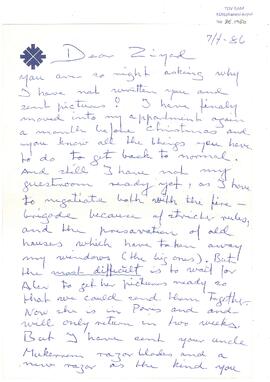 7/1-86
Dear Ziyad
you are so right asking why
I have not written you and
sent pictures! I have finally
moved into my appartment again
a month before Christmas and
you know all the things you have
to do to get back to normal.
And still I have not my
guestroom ready yet, as I have
to negotiate both with the fire-
brigade because of stricter rules,
and the preservation of old
houses which have taken away
my windows (the big ones). But
the most difficult is to wait for
to get her pictures ready so
that we could send them together.
Now she is in Paris and and
will only return in two weeks.
But I have sent your uncle
razor blades and a
new razor as the kind you